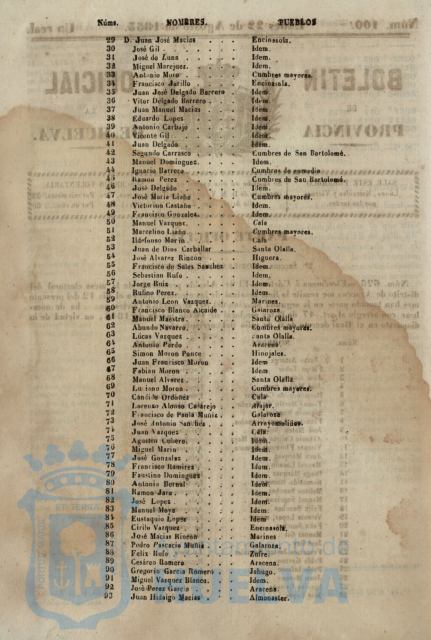 Núms. NOMBRES. PUEBLOS
29 D. Juan José Macías . . . . Encinasola.
30 José Gil . . . . Idem.
31 José de Luna . . . . Idem.
32 Miguel Marquez. . . . Idem.
33 Antonio Moro . . . . Cumbres mayores.
34 Francisco Jarillo . . . . Encinasola.
35 Juan José Delgado Barrero Idem.
36 Vitor Delgado Barrero . . Idem.
37 Juan Manuel Macías . . . Idem.
38 Eduardo Lopez . . . . Idem.
39 Antonio Carbajo . . . . Idem.
40 Vicente Gil . . . . Idem.
41 Juan Delgado . . . . Idem.
42 Segundo Carrasco . . . . Cumbres de San Bartolomé.
43 Manuel Dominguez. . . . Idem.
44 Ignacio Barrera . . . . Cumbres de enmedio
45 Ramon Perez . . . . Cumbres de San Bartolomé.
46 José Delgado . . . . Idem.
47 José Maria Liaño . . . . Cumbres mayores.
48 Victorino Castaño . . . . Idem.
49 Francisco Gonzalez. . . . Idem.
50 Manuel Vazquez . . . . Cala
51 Marcelino Liaño . . . . Cumbres mayores.
52 Ildefonso Marin . . . . Cala
53 Juan de Dios Carballar . . Santa Olalla.
54 José Alvarez Rincon . . . Higuera.
55 Francisco de Sales Sanchez . Idem.
56 Sebastian Rufo . . . . Idem.
57 Jorge Ruiz . . . . Idem.
58 Rufino Perez . . . . Idem.
59 Antonio Leon Vazquez. . . Marines.
60 Francisco Blanco Alcaide . Galaroza
61 Manuel Maestre . . . . Santa Olalla
62 Abundo Navarro. . . . Cumbres mayores.
63 Lucas Vazquez . . . . Santa Olalla.
64 Antonio Pardo . . . . Aracena
65 Simon Moron Ponce . . . Hinojales.
66 Juan Francisco Moron . . Idem.
67 Fabian Moron . . . . Idem
68 Manuel Alvarez . . . . Santa Olalla.
69 Luciano Moron . . . . Cumbres mayores.
70 Candido Ordoñez . . . . Cala
71 Lorenzo Alonso . . Arajar.
72 Francisco de Paula Muñiz . Galaroza
73 José Antonio Sanchez . . . Arroyomolinos.
74 Juan Vazquez . . . . Cala.
75 Agustin . . . . Idem.
76 Miguel Marin . . . . Idem.
77 José Gonzalez . . . . Idem.
78 Francisco Ramirez . . . . Idem.
79 Faustino Dominguez . . . Idem.
80 Antonio Bernal . . . . Idem.
81 Ramon Jara . . . . Idem.
82 José Lopez . . . . Idem.
83 Manuel Moya . . . . Idem.
84 Eustaquio Lopez . . . . Idem
85 Cirilo Vazquez . . . . Encinasola.
86 José Macias Rincon . . . Marines
87 Pedro Pascacio Muñiz . . Galaroza.
88 Felix Rufo . . . . Zufre.
89 Cesareo Romero . . . . Aracena.
90 Gregorio Garcia Romero . . Jabugo.
91 Miguel Vazquez Blanco. . . Idem.
92 José Perez Garcia . . . . Aracena.
93 Juan Hidalgo Macías . . . Almonaster.